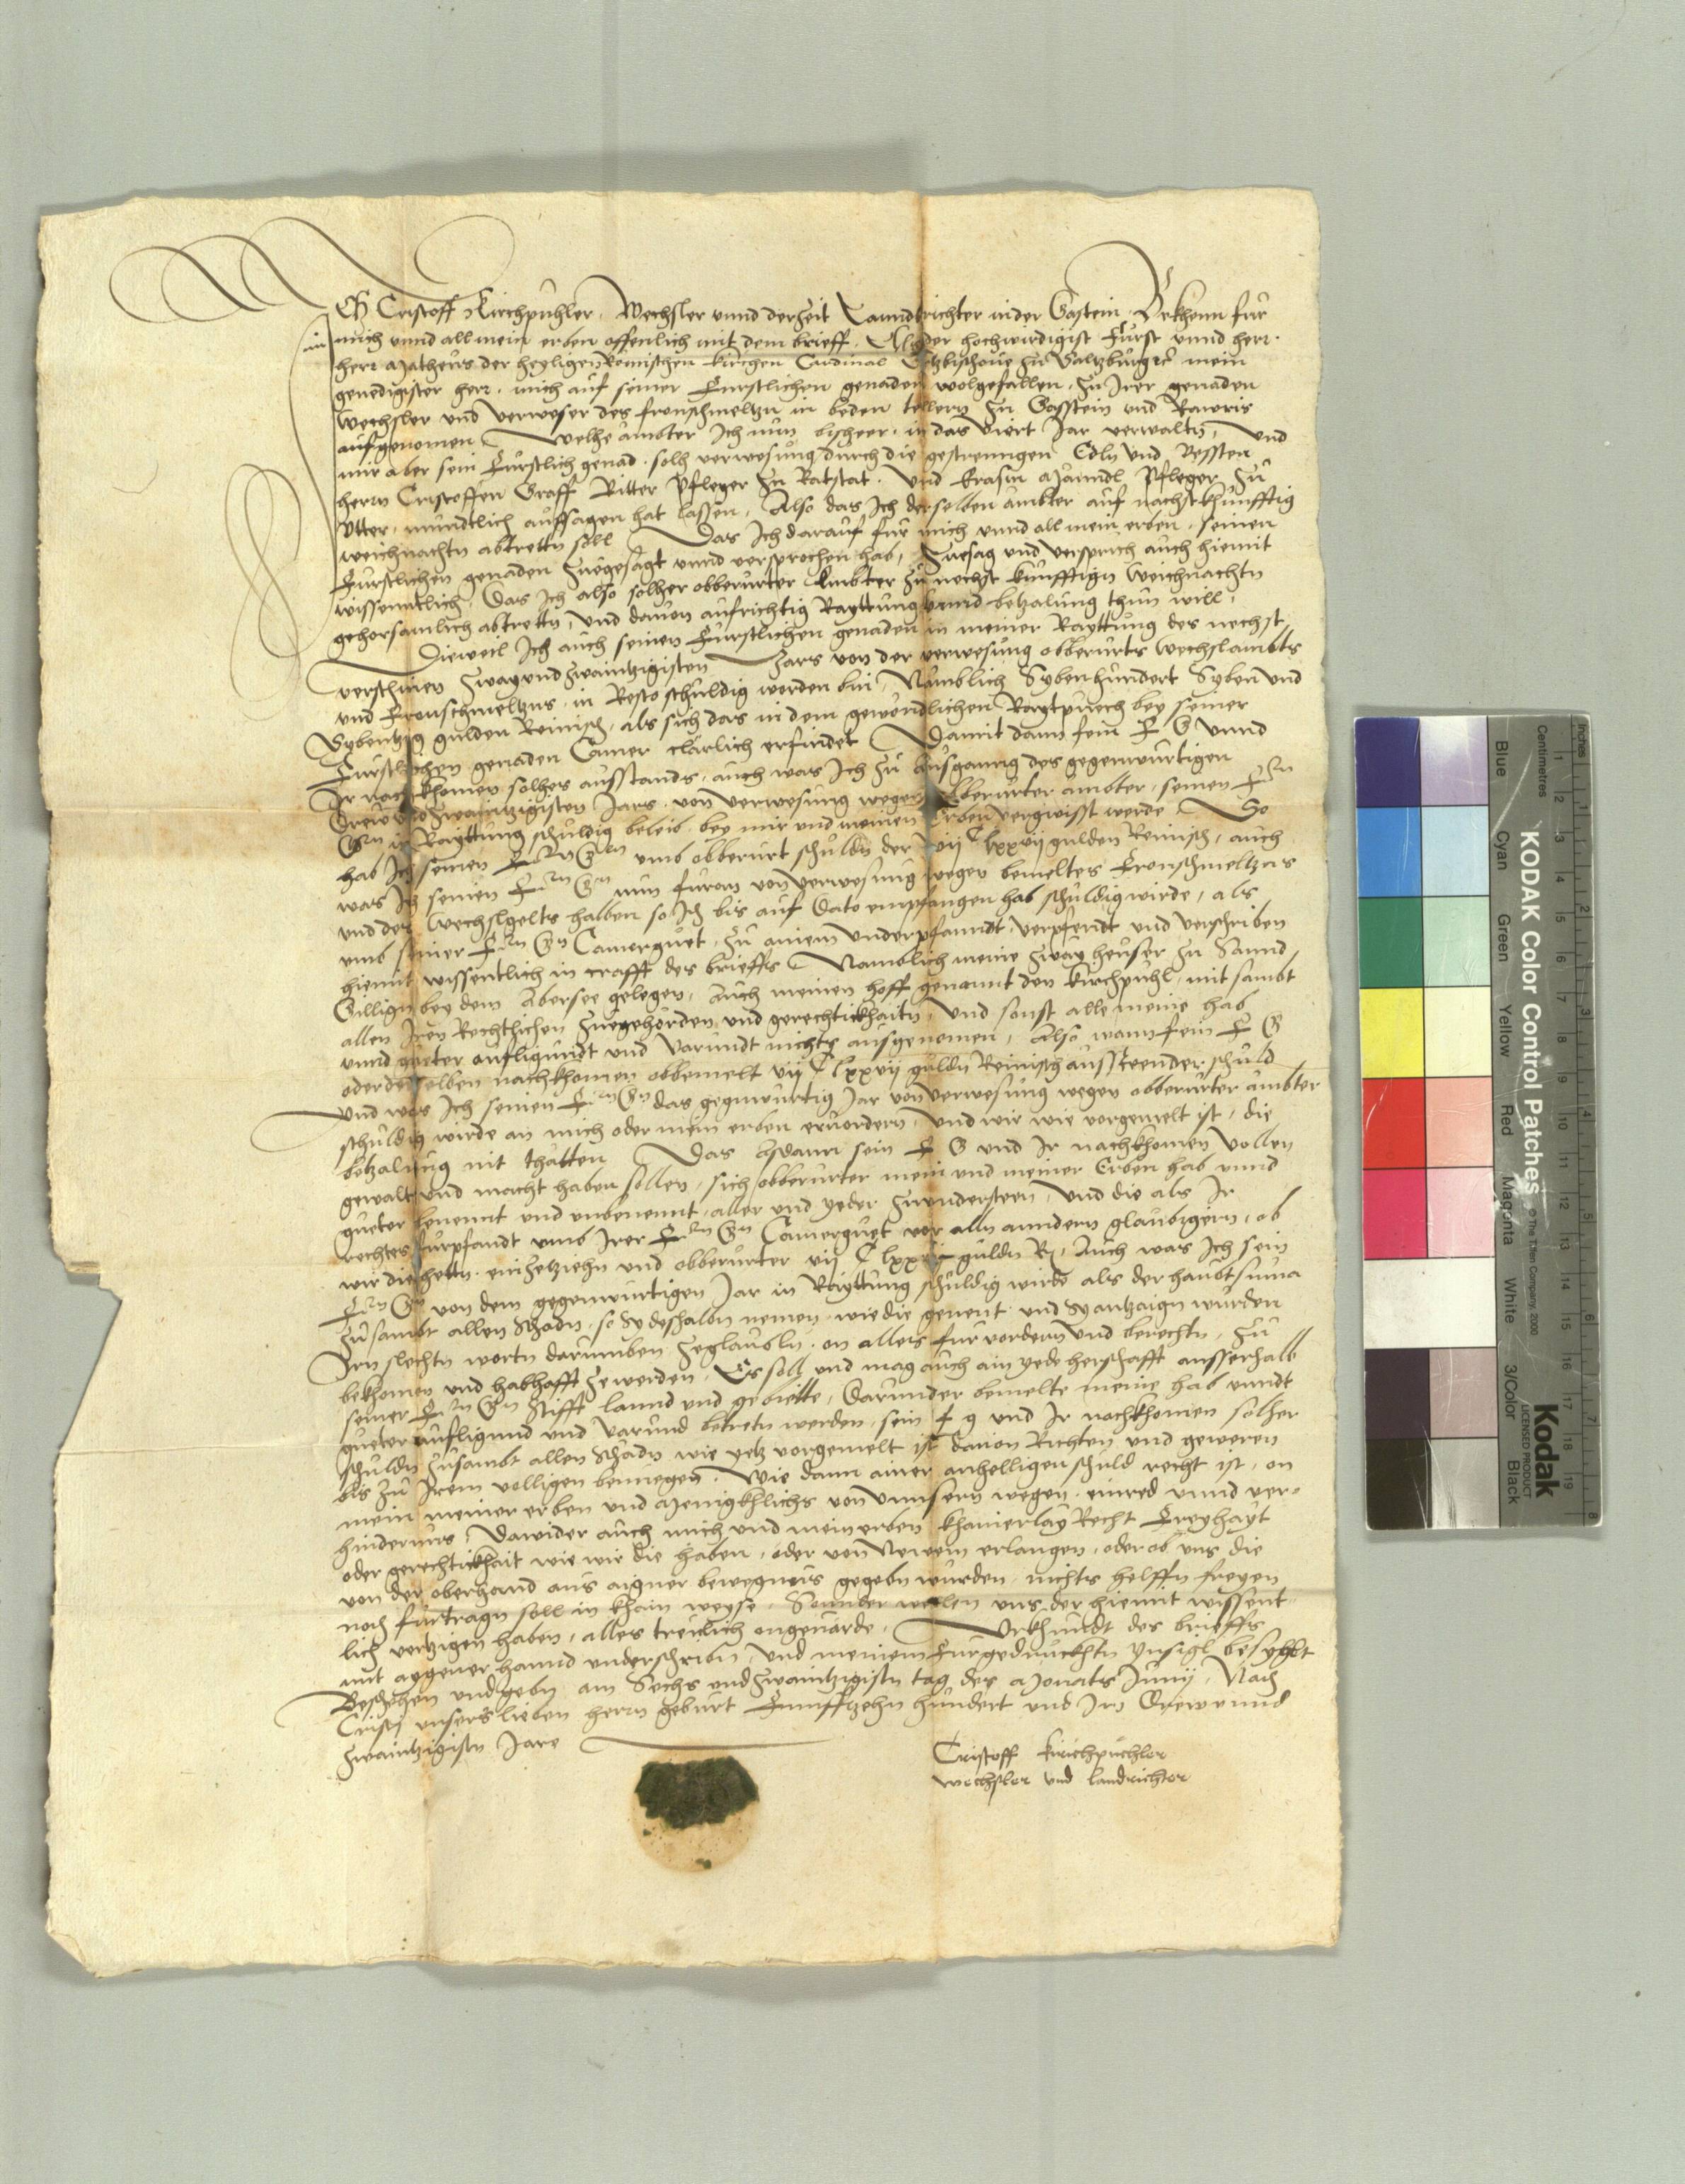 Ich Cristoff Kirchpuhler, Wechsler unnd derzeit Lanndtrichter in der Gastein, Bekhenn fur
mich unnd all mein erben offenlich mit dem brieff. Als der hochwirdigist Fürst unnd herr
herr Matheus der heyligen Römischen kirchen Cardinal Ertzbischove zu Saltzburg ec mein
genedigister herr, mich auf seiner Furstlichen genaden wolgefallen, zu Irer genaden
Wechsler und verweser des fronschmeltzn in beden tellern zu Gasstein und Rawris
aufgenomen Welhe ambter Ich nun bisheer in das viert Jar verwaltn, und
mir aber sein Fürstlich genad solh verwesung durch die gestrenngen Edln und Vessten
herrn Cristoffen Graff Ritter Pfleger zu Ratstat. Und Erasm Männdl Pfleger zu
Ytter, mündtlich aufsagen hat lassen, Also das Ich derselben ämbter auf nachstkhünfftig
weichnachtn abtrettn soll Das Ich darauf fur mich unnd all mein erben, seinen
Fürstlichen genaden zuegesagt unnd versprochen hab, Zuesag und versprich auch hiemit
wissenntlich, Das Ich also solher obberürter Ambter zu nechst künfftign Weichnachtn
gehorsamlich abtrettn, und davon aufrichtig Rayttung unnd betzalung thun will,
Dieweil Ich auch seinen Fürstlichen genaden in meiner Rayttung des nechst
verschinen Zwayundzwaintzigisten Jars von der verwesung obberürts Wechslambts
und Fronschmeltzns, in Resto schuldig worden bin, Nämblich Sybenhundert Syben und
Sybentzig gulden Reinisch, als sich das in dem gewondlichen Raytpuech bey seiner
Fürstlichen genaden Camer clärlich erfindet Damit dann sein F G unnd
Ir nachkhomen solhes ausstands, auch was Ich zu Ausganng des gegenwürtigen
Drewundzwaintzigisten Jars, von verwesung wegen obberürter ambter, seinen F:n
G:n in Rayttung schuldig beleib, bey mir und meinen Erben vergwisst werde So
hab Ich seinen F:n G:n umb obberürt schuldn der vij C lxxvij gulden Reinisch, auch
was Ich seinen F:n G:n nun füran von verwesung wegen bemeltes Fronschmeltzns
und des Wechslgelts halben so Ich bis auf Dato empfangen hab schuldig wirde, als
umb seiner F:n G:n Camerguet, zu ainem Underpfanndt, verpfendt und verschriben
hiemit wissentlich in crafft des brieffs Namblich meine Zway heuser zu Sannd
Gillign bey dem Abersee gelegen, Auch meinen hoff genannt den Kirchpuhl, mit sambt
allen Iren Rechtlichen Zuegehörden und gerechtickhaitn, Und sonst alle meine hab
unnd gueter aufligundt und varundt nichts ausgenomen, Also wann sein F G
oder derselben nachkhomen obbemelt vij C lxxvij guldn Reinisch aussteender schuld
und was Ich seinen F:n G:n das gegnwürtig Jar von verwesung wegen obberürter ämbter
schuldig wirde an mich oder mein erben ervordern, Und wir wie vorgemelt ist, die
betzalung nit thätten Das alsdann sein F G und Ir nachkhomen vollen
gewalt und macht haben sollen, sich obberürter mein und meiner Erben hab unnd
gueter benennt und unbenennt, aller und yeder zuundersteen, Und die als Ir
rechtes fürpfandt umb Irer F:n G:n Camerguet vor alln anndern glaubigern, ob
wir die hettn, einzetziehn und obberürter vij C lxxvij guldn R, Auch was Ich sein
F:n G:n von dem gegenwürtigen Jar in Rayttung schuldig wirde als der haubtsuma
zusambt allen Schadn, so Sy deshalbn nemen, wie die genent und Sy antzaign wurden
Irn slechtn wortn darumben zeglaubln, on alles fürvordern und berechtn, zu
bekhomen und habhafft zewerden, Es soll und mag auch ain yede herschafft ausserhalb
seiner F:n G:n Stifft lannd und gebiette, Darunder bemelte meine hab unndt
gueter aufligund und varund betretn werden, sein f g und Ir nachkhomen solher
schuldn zusambt allen Schadn wie yetz vorgemelt ist davon Richten und geweren
bis zu Irem volligen benuegen, Wie dann ainer anhelligen schuld recht ist, on
mein meiner erben und Menigkhlichs von unnsern wegen, einred unnd ver=
hindernus, Dawider auch mich und mein erben khainerlay Recht Freyhayt
oder gerechtickhait wie wir die haben, oder von Newem erlangen, oder ob uns die
von der oberhand aus aigner bewegnus gegebn wurden, nichts helffn freyen
noch fürtragn soll in khain weyse, Sonnder wellen uns der hiemit wissent-
lich vertzigen haben, alles treulich ongevärde, Urkhundt des brieffs
mit aygener hannd underschribn, Und meinem Furgedruckhtn Ynsigl besyglt
Beschehen und gebn am Sechs und Zwaintzigistn tag des Monats Junij, Nach
Cristj unsers lieben herrn geburt Funfftzehn hundert und Im Drew unnd
zwaintzigistn Jare
Cristoff Kirichpuchler
Wechsler und landrichter